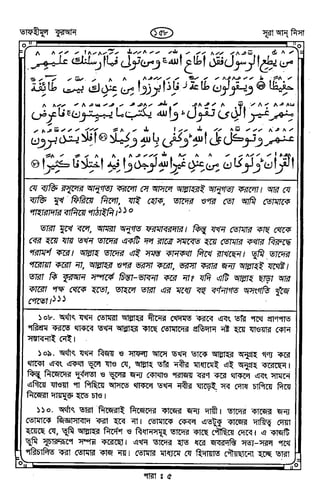 তাফহীমুল কুরআন ১৫৮ সূরা আন্ নিসা
مَنْ يُّطِعِ الرَّسُوْلَ فَقَدْ اَطَاعَ اللّٰهَ ۚ وَمَنْ تَوَلّٰى فَمَآ اَرْسَلْنٰكَ عَلَيْهِمْ
حَفِيْظًا ۝ وَيَقُوْلُوْنَ طَاعَةٌ ۫ فَاِذَا بَرَزُوْا مِنْ عِنْدِكَ بَيَّتَ طَآئِفَةٌ
مِّنْهُمْ غَيْرَ الَّذِىْ تَقُوْلُ ۚ وَاللّٰهُ يَكْتُبُ مَا يُبَيِّتُوْنَ ۚ فَاَعْرِضْ
عَنْهُمْ وَتَوَكَّلْ عَلَى اللّٰهِ ۚ وَكَفٰى بِاللّٰهِ وَكِيْلًا ۝ اَفَلَا يَتَدَبَّرُوْنَ
الْقُرْاٰنَ ۚ وَلَوْ كَانَ مِنْ عِنْدِ غَيْرِ اللّٰهِ لَوَجَدُوْا فِيْهِ اخْتِلَافًا كَثِيْرًا ۝
যে ব্যক্তি রসূলের আনুগত্য করলো সে আসলে আল্লাহরই আনুগত্য করলো। আর যে
ব্যক্তি মুখ ফিরিয়ে নিলো, যাই হোক, তাদের ওপর তো আমি তোমাকে
পাহারাদার বানিয়ে পাঠাইনি।১১০
তারা মুখে বলে, আমরা অনুগত ফরমাবরদার। কিন্তু যখন তোমার কাছ থেকে
বের হয়ে যায় তখন তাদের একটি দল রাত্রে সমবেত হয়ে তোমার কথার বিরুদ্ধে
পরামর্শ করে। আল্লাহ তাদের এই সমস্ত কানকথা লিখে রাখছেন। তুমি তাদের
পরোয়া করো না, আল্লাহর ওপর ভরসা করো, ভরসা করার জন্য আল্লাহই যথেষ্ট।
তারা কি কুরআন সম্পর্কে চিন্তা-ভাবনা করে না? যদি এটি আল্লাহ ছাড়া আর
কারো পক্ষ থেকে হতো, তাহলে তারা এর মধ্যে বহু বর্ণনাগত অসংগতি খুঁজে
পেতো।১১১
১০৮. অর্থাৎ যখন তোমরা আল্লাহর দীনের খেদমত করবে এবং তাঁর পথে প্রাণপাত
পরিশ্রম করতে থাকবে তখন আল্লাহর কাছে তোমাদের প্রতিদান নষ্ট হয়ে যাওয়ার কোন
সম্ভাবনাই নেই।
১০৯. অর্থাৎ যখন বিজয় ও সাফল্য আসে তখন তাকে আল্লাহর অনুগ্রহ গণ্য করে
থাকো এবং একথা ভুলে যাও যে, আল্লাহ তাঁর নবীর মাধ্যমেই এই অনুগ্রহ করেছেন।
কিন্তু নিজেদের দুর্বলতা ও ভুলের জন্য কোথাও পরাজয় বরণ করে থাকলে এবং সামনে
এগিয়ে যাওয়া পা পিছিয়ে আসতে থাকলে তখন নবীর ঘাড়েই সব দোষ চাপিয়ে দিয়ে
নিজেরা দায়মুক্ত হতে চাও।
১১০. অর্থাৎ তারা নিজেরাই নিজেদের কাজের জন্য দায়ী। তাদের কাজের জন্য
তোমাকে জিজ্ঞাসাবাদ করা হবে না। তোমাকে কেবল এতটুকু কাজের দায়িত্ব দেয়া
হয়েছে যে, তুমি আল্লাহর নির্দেশ ও বিধানসমূহ তাদের কাছে পৌঁছিয়ে দেবে। এ কাজটি
তুমি সুচারুরূপে সম্পন্ন করেছো। এখন তাদের হাত ধরে জবরদস্তি সত্য-সরল পথে
পরিচালিত করা তোমার কাজ নয়। তোমার মাধ্যমে যে হিদায়াত পৌঁছানো হচ্ছে তারা
পারা ঃ ৫